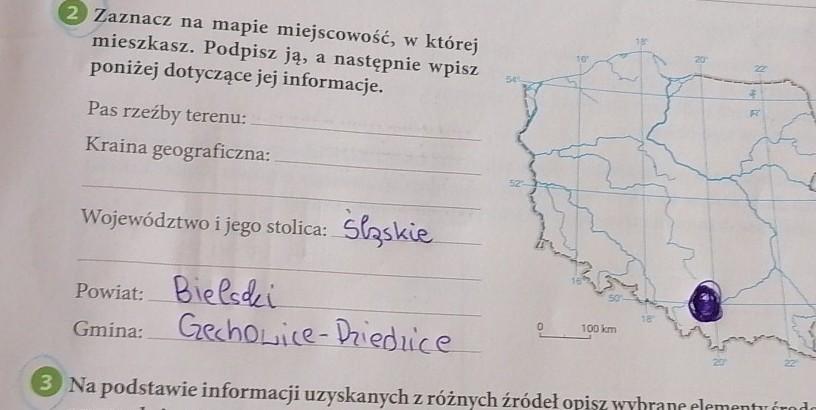 2 Zaznacz na mapie miejscowość, w której
mieszkasz. Podpisz ją, a następnie wpisz
poniżej dotyczące jej informacje.
Pas rzeźby terenu:
Kraina geograficzna:
Województwo i jego stolica: Śląskie
Powiat: Bielski
Gmina: Czechowice-Dziedzice
18°
16°
20°
22°
54°
52°
16°
50°
18°
20°
22°
0 100 km
3 Na podstawie informacji uzyskanych z różnych źródeł opisz wybrane elementy